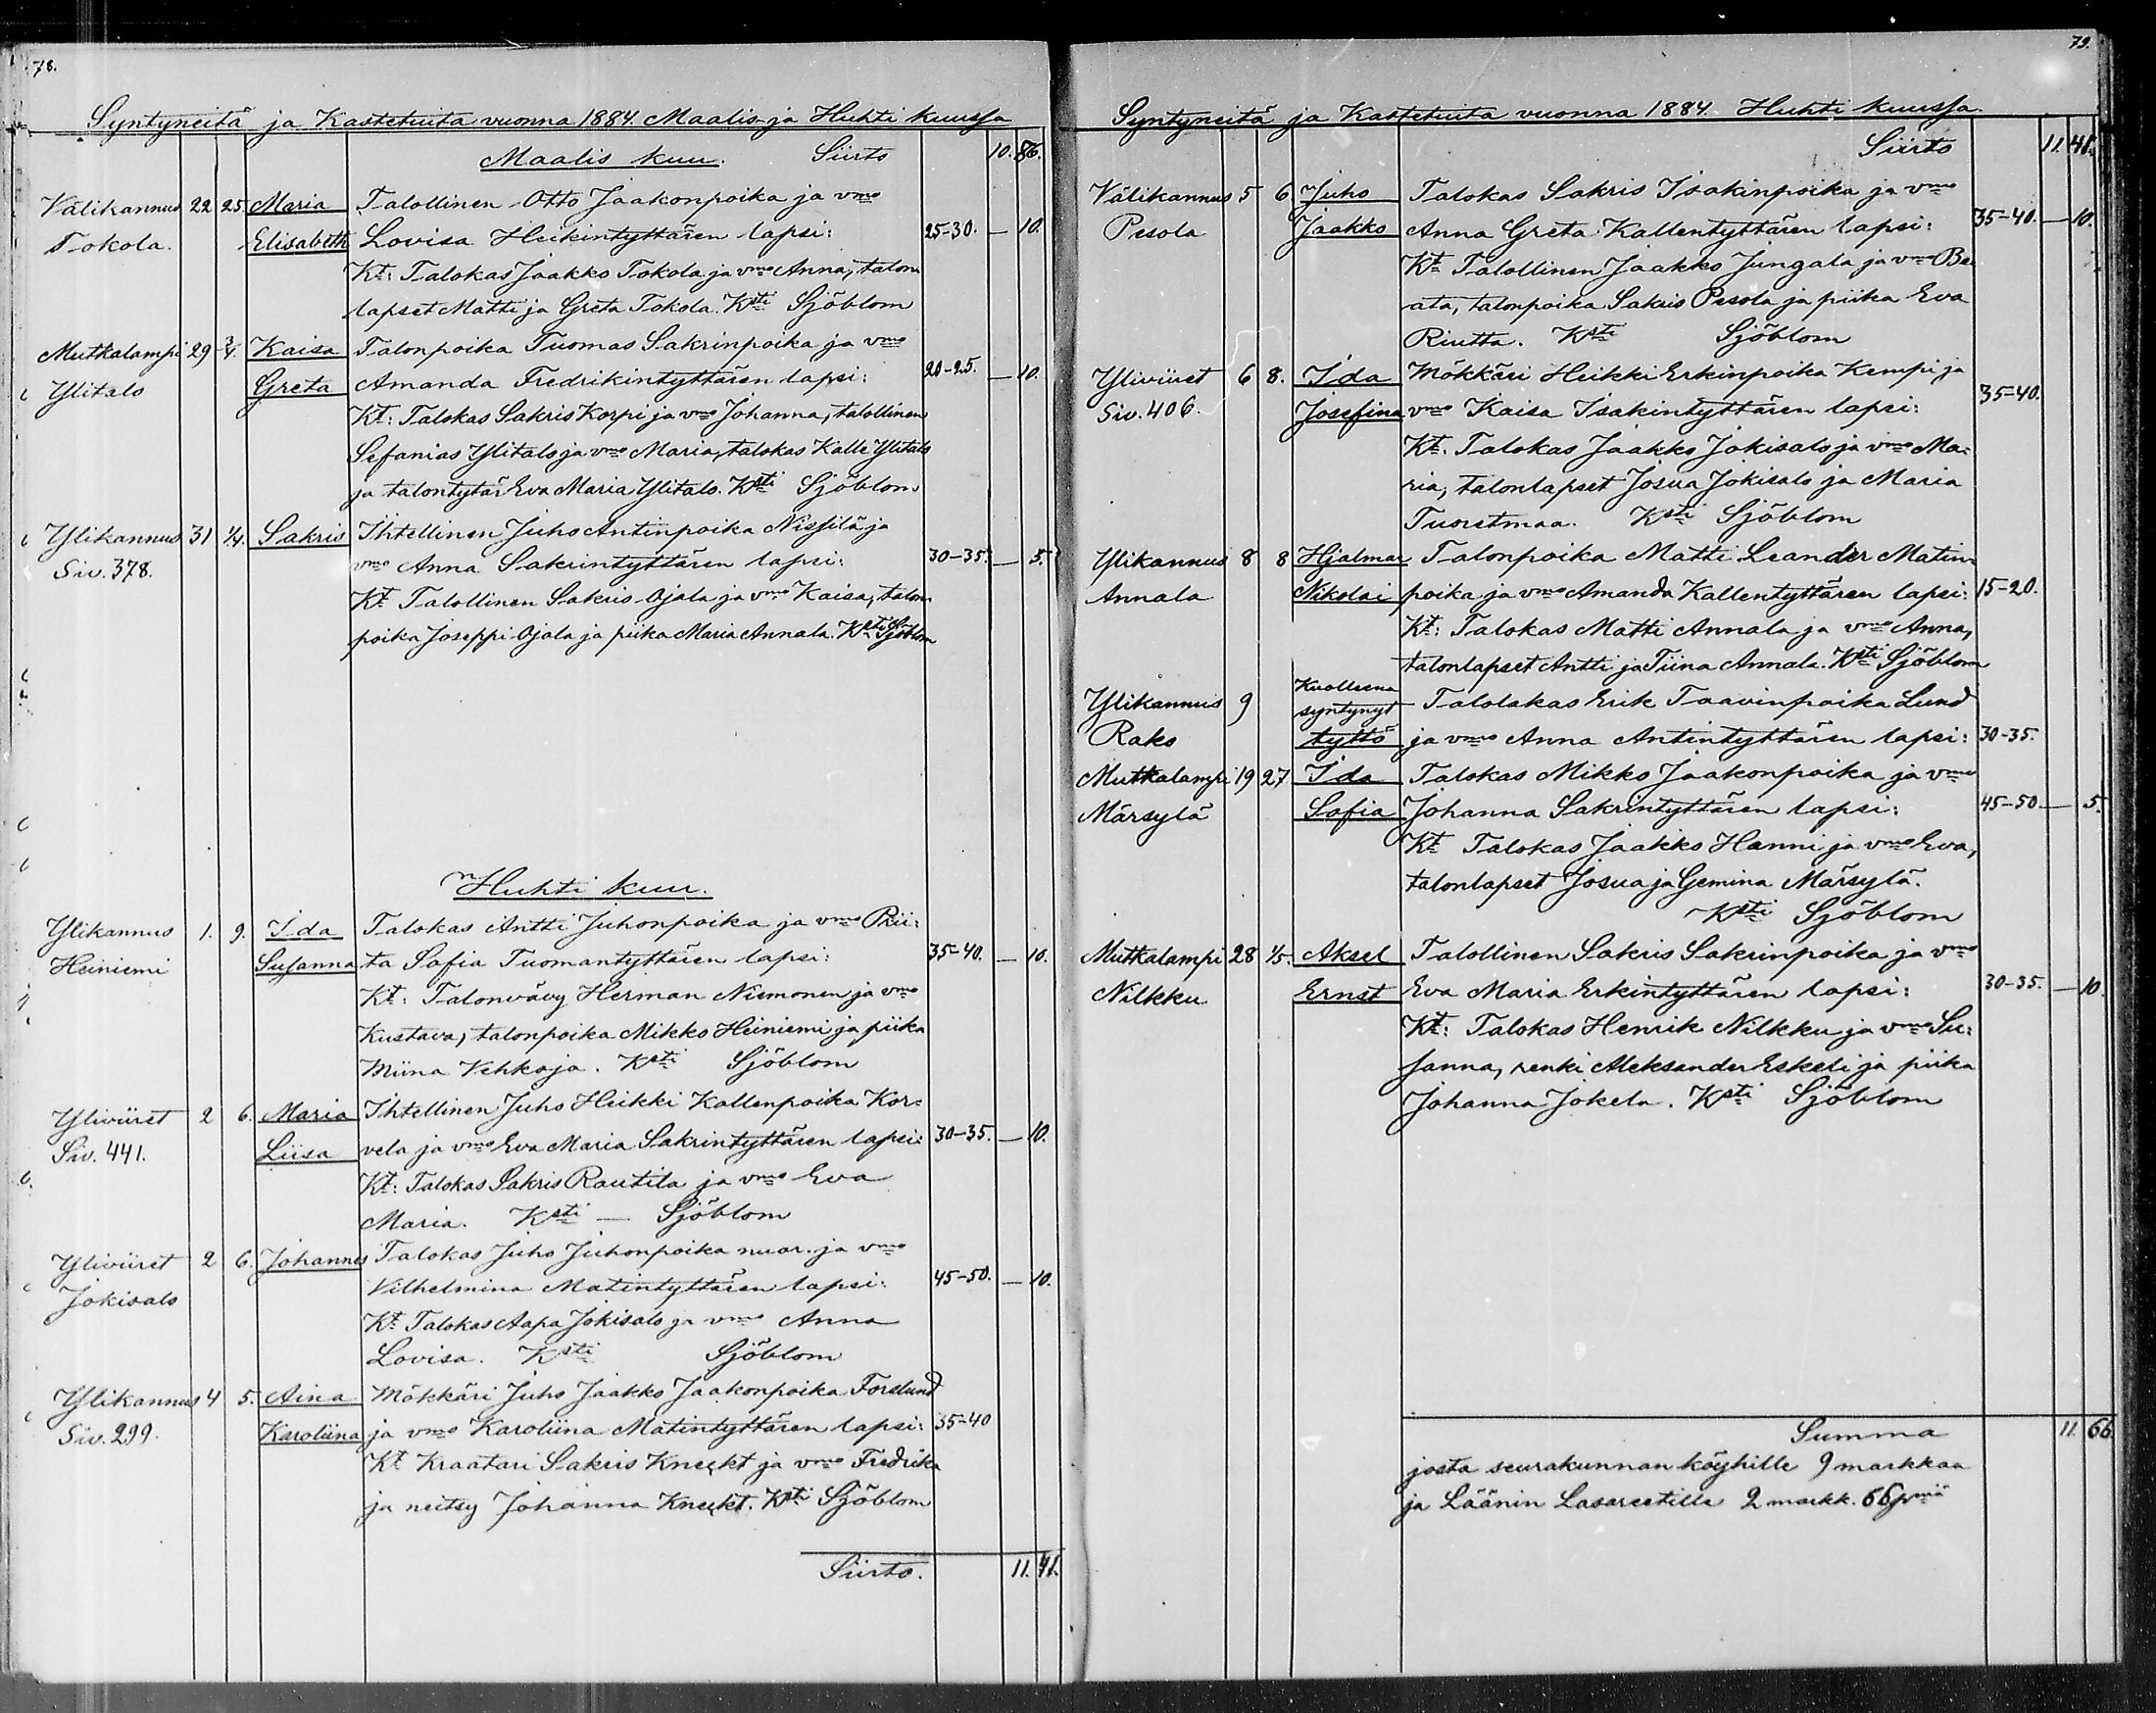 78.
Syntyneitä ja Kastetuita vuonna 1884. Maalis- ja Huhti kuussa
Maalis kuu. Siirto 10. 86.
Välikannus 22 25. Maria Talollinen Otto Jaakonpoika ja vmo
Tokola. Elisabeth Lovisa Heikintyttären lapsi: 25-30. — 10.
Kt: Talokas Jaakko Tokola ja vmo Anna, talon
lapset Matti ja Greta Tokola. Ksti Sjöblom
Mutkalampi 29 3/4. Kaisa Talonpoika Tuomas Sakrinpoika ja vmo
Ylitalo Greta Amanda Fredrikintyttären lapsi: 20-25. — 10.
Kt: Talokas Sakris Korpi ja vmo Johanna, talollinen
Sefanias Ylitalo ja vmo Maria, talokas Kalle Ylitalo
ja talontytär Eva Maria Ylitalo. Ksti Sjöblom
Ylikannus 31 1/4. Sakris Ihtellinen Juho Antinpoika Nissilä ja
Siv. 378. vmo Anna Sakrintyttären lapsi: 30-35. — 5.
Kt Talollinen Sakris Ojala ja vmo Kaisa, talon
poika Joseppi Ojala ja piika Maria Annala. Ksti Sjöblom
Huhti kuu.
Ylikannus 1. 9. Ida Talokas Antti Juhonpoika ja vmo Prii:
Heiniemi Susanna ta Sofia Tuomantyttären lapsi: 35-40. — 10.
Kt: Talonvävy Herman Niemonen ja vmo
Kustava, talonpoika Mikko Heiniemi ja piika
Miina Vehkoja. Ksti Sjöblom
Yliviiret 2 6. Maria Ihtellinen Juho Heikki Kallenpoika Kor:
Siv. 441. Liisa vela ja vmo Eva Maria Sakrintyttären lapsi: 30-35. — 10.
Kt: Talokas Sakris Rautila ja vmo Eva
Maria. Ksti — Sjöblom
Yliviiret 2 6. Johannes Talokas Juho Juhonpoika nuor. ja vmo
Jokisalo Vilhelmina Matintyttären lapsi: 45-50. — 10.
Kt Talokas Aapa Jokisalo ja vmo Anna
Lovisa. Ksti Sjöblom
Ylikannus 4 5. Aina Mökkäri Juho Jaakko Jaakonpoika Forslund
Siv. 299. Karoliina ja vmo Karoliina Matintyttären lapsi: 35-40
Kt Kraatari Sakris Kneckt ja vmo Fredrika
ja neitsy Johanna Kneckt. Ksti Sjöblom
Siirto. 11. 41.
79.
Syntyneitä ja Kastetuita vuonna 1884. Huhti kuussa
Siirto 11. 41.
Välikannus 5 6 Juho Talokas Sakris Isakinpoika ja vmo
Pesola Jaakko Anna Greta Kallentyttären lapsi: 35-40. — 10.
Kt Talollinen Jaakko Jungala ja vmo Be
ata, talonpoika Sakris Pesola ja piika Eva
Riutta. Ksti Sjöblom
Yliviiret 6 8. Ida Mökkäri Heikki Erkinpoika Kempi ja
Siv. 406. Josefina vmo Kaisa Isakintyttären lapsi: 35-40.
Kt. Talokas Jaakko Jokisalo ja vmo Ma:
ria, talonlapset Josua Jokisalo ja Maria
Tuoretmaa. Ksti Sjöblom
Ylikannus 8 8 Hjalmar Talonpoika Matti Leander Matin
Annala Nikolai poika ja vmo Amanda Kallentyttären lapsi: 15-20.
Kt: Talokas Matti Annala ja vmo Anna,
talonlapset Antti ja Tiina Annala. Ksti Sjöblom
Ylikannus 9 Kuolleena syntynyt Talolakas Erik Taavinpoika Lund
Rako tyttö ja vmo Anna Antintyttären lapsi: 30-35.
Mutkalampi 19 27 Ida Talokas Mikko Jaakonpoika ja vmo
Märsylä Sofia Johanna Sakrintyttären lapsi: 45-50 — 5.
Kt Talokas Jaakko Hanni ja vmo Eva,
talonlapset Josua ja Gemina Märsylä.
Ksti Sjöblom
Mutkalampi 28 1/5. Aksel Talollinen Sakris Sakrinpoika ja vmo
Nilkku Ernst Eva Maria Erkintyttären lapsi: 30-35. — 10.
Kt: Talokas Henrik Nilkku ja vmo Su:
sanna, renki Aleksander Eskeli ja piika
Johanna Jokela. Ksti Sjöblom
Summa 11. 66.
josta seurakunnan köyhille 9 markkaa
ja Läänin Lasareetille 2 markk. 66 pniä